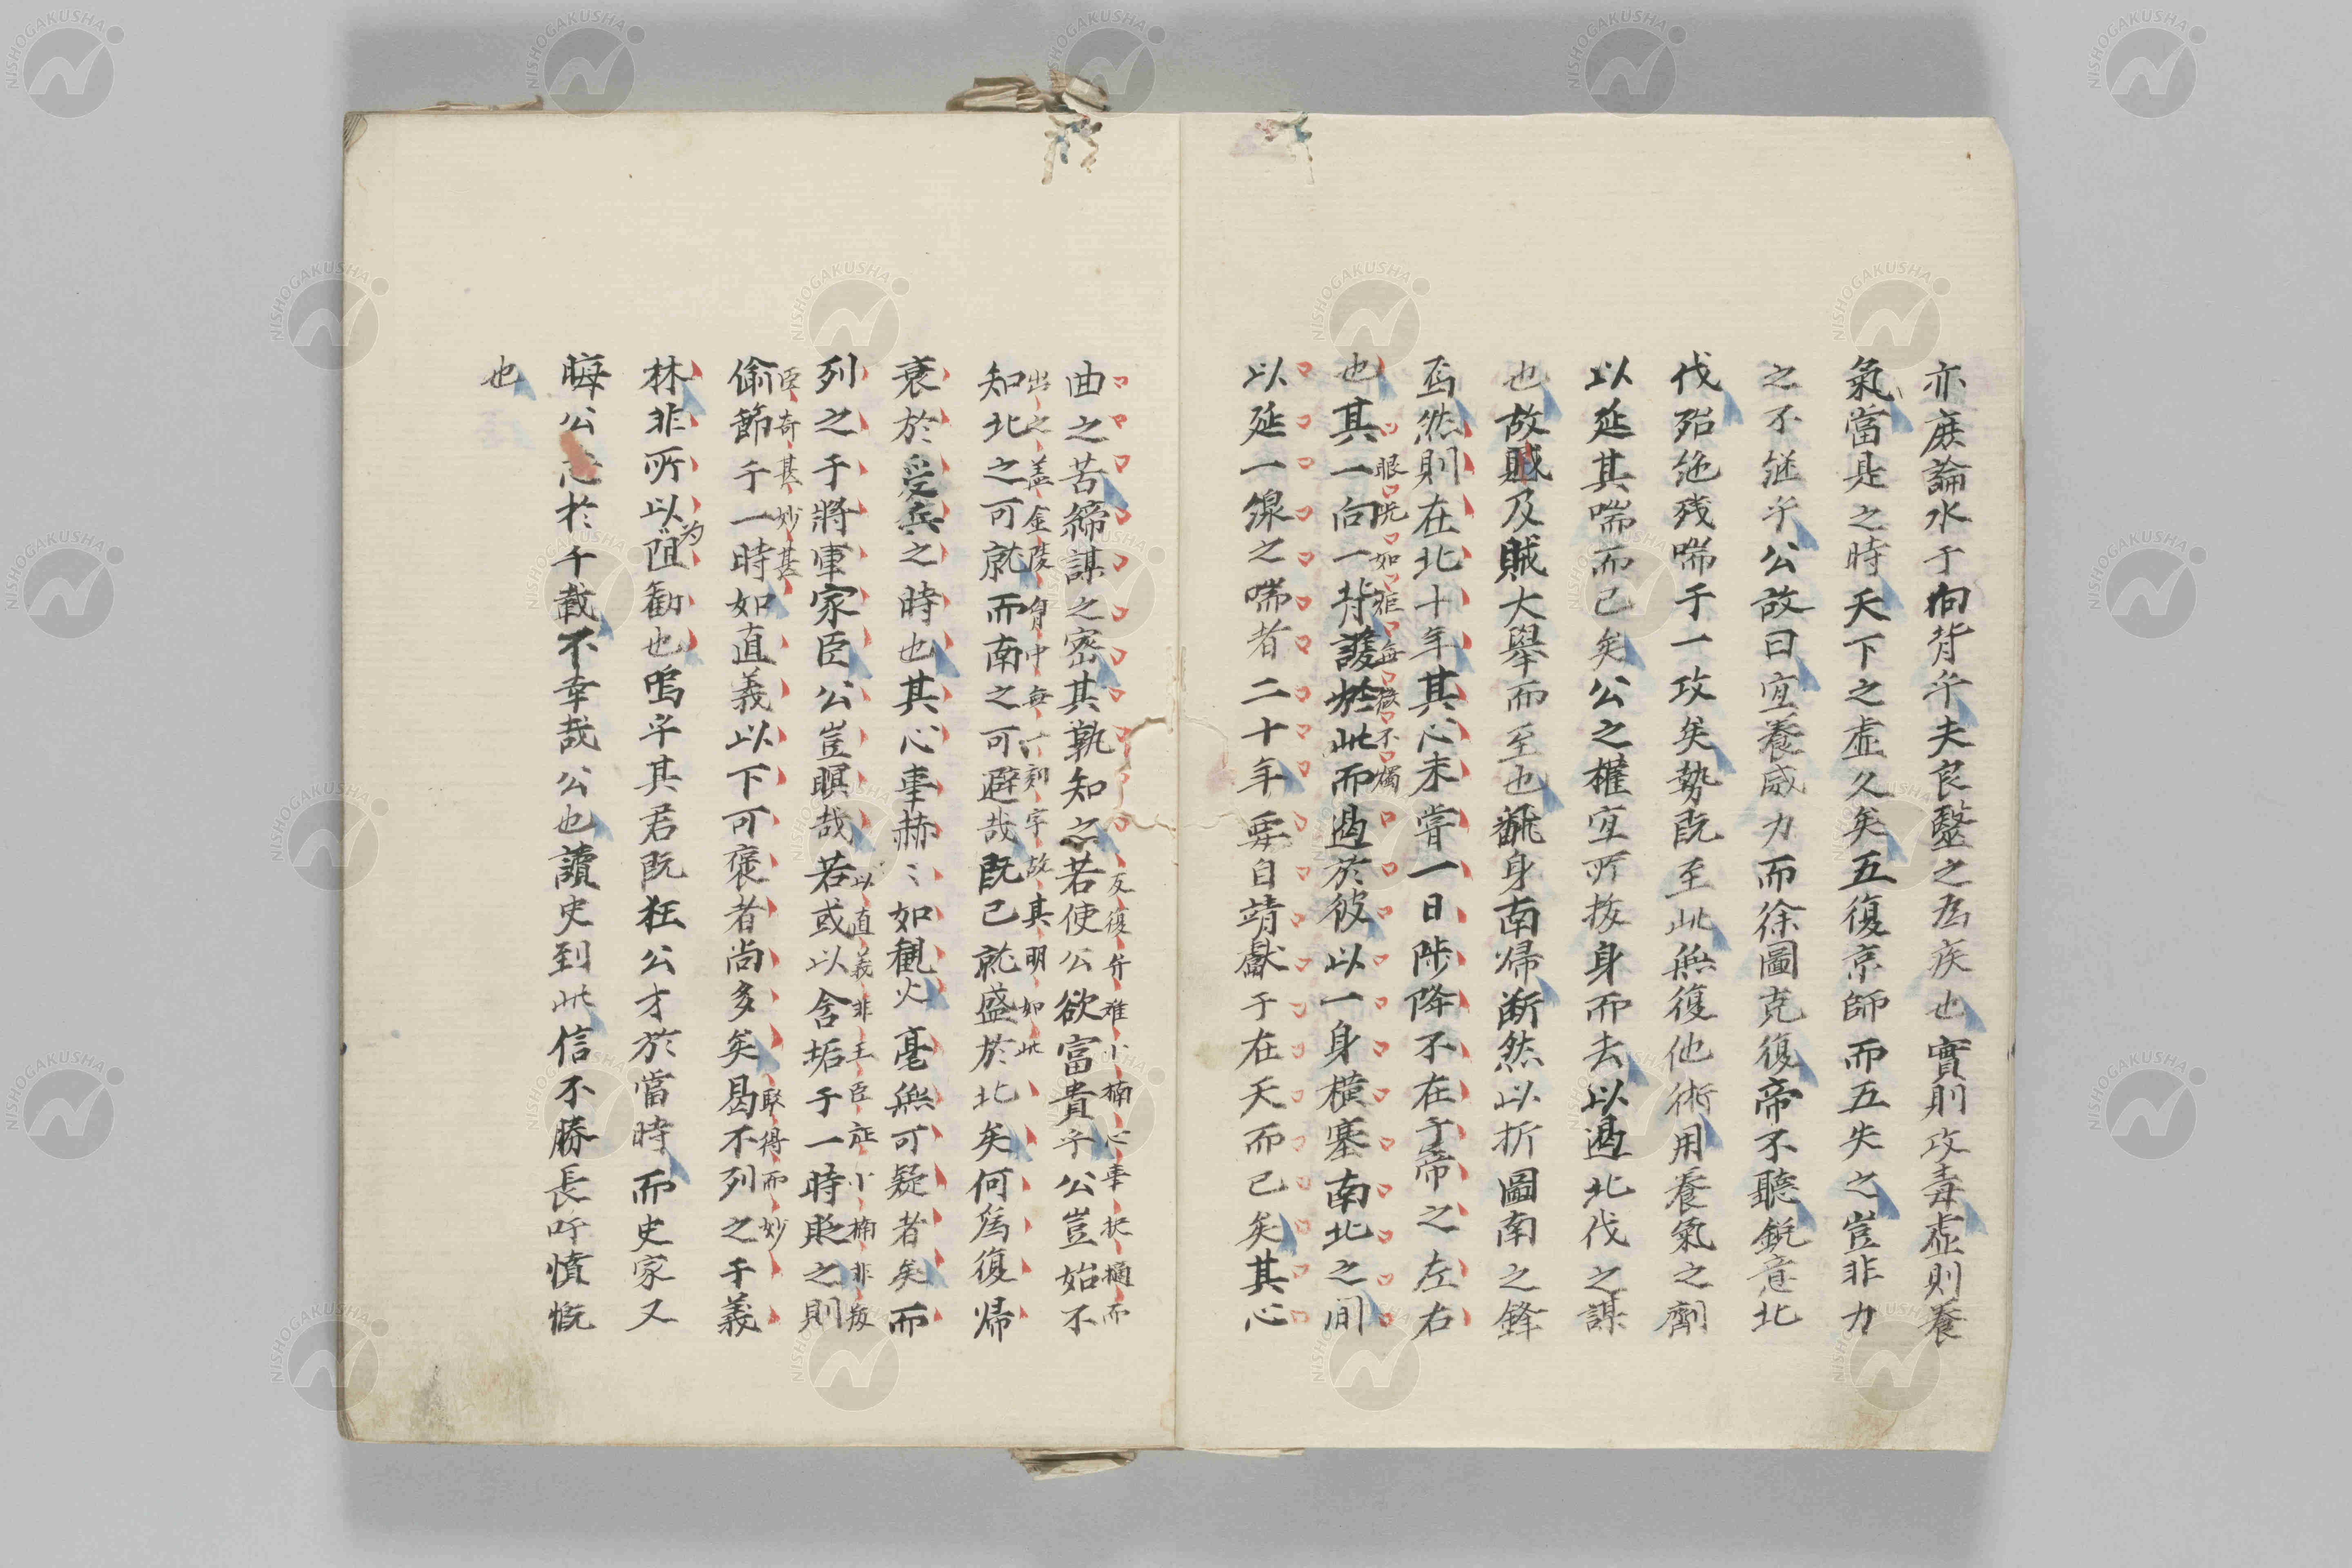 亦庶論水于向背乎夫良毉之為疾也實則攻毒虛則養
氣當是之時天下之虛久矣五復京師而五失之豈非力
之不継乎公故曰宜養威力而徐圖克復帝不聽鋭意北
伐殆絶殘喘于一攻矣勢既至此無復他術用養氣之劑
以延其喘而已矣公之權宜所抜身而去以遏北伐之謀
也故賊及賊大舉而至也飜身南帰断然以折圖南之鋒
焉然則在北十年其心未嘗一日陟降不在于帝之左右
也其一向一背護於此而遏於彼以一身橫塞南北之间
眼光如炬每微不燭
以延一線之喘者二十年要自靖獻于在天而已矣其心
曲之苦締謀之密其孰知之若使公欲富貴乎公豈始不
反復弁难小楠心事抉摘而
出之盖金陵胸中每丨刻字故其明如此
知北之可就而南之可避哉既已就盛於北矣何爲復帰
衰於受兵之時也其心事赫〻如観火毫無可疑者矣而
列之于將軍家臣公豈瞑哉若或以含垢于一時貶之則
以直義非王臣証小楠非叛
臣奇甚妙甚
偷節于一時如直義以下可褒者尚多矣曷不列之于義
取得而妙
林非所以为阻勧也嗚乎其君既狂公才於當時而史家又
晦公於千載不幸哉公也讀史到此信不勝長吁憤慨
也
NISHOGAKUSHA